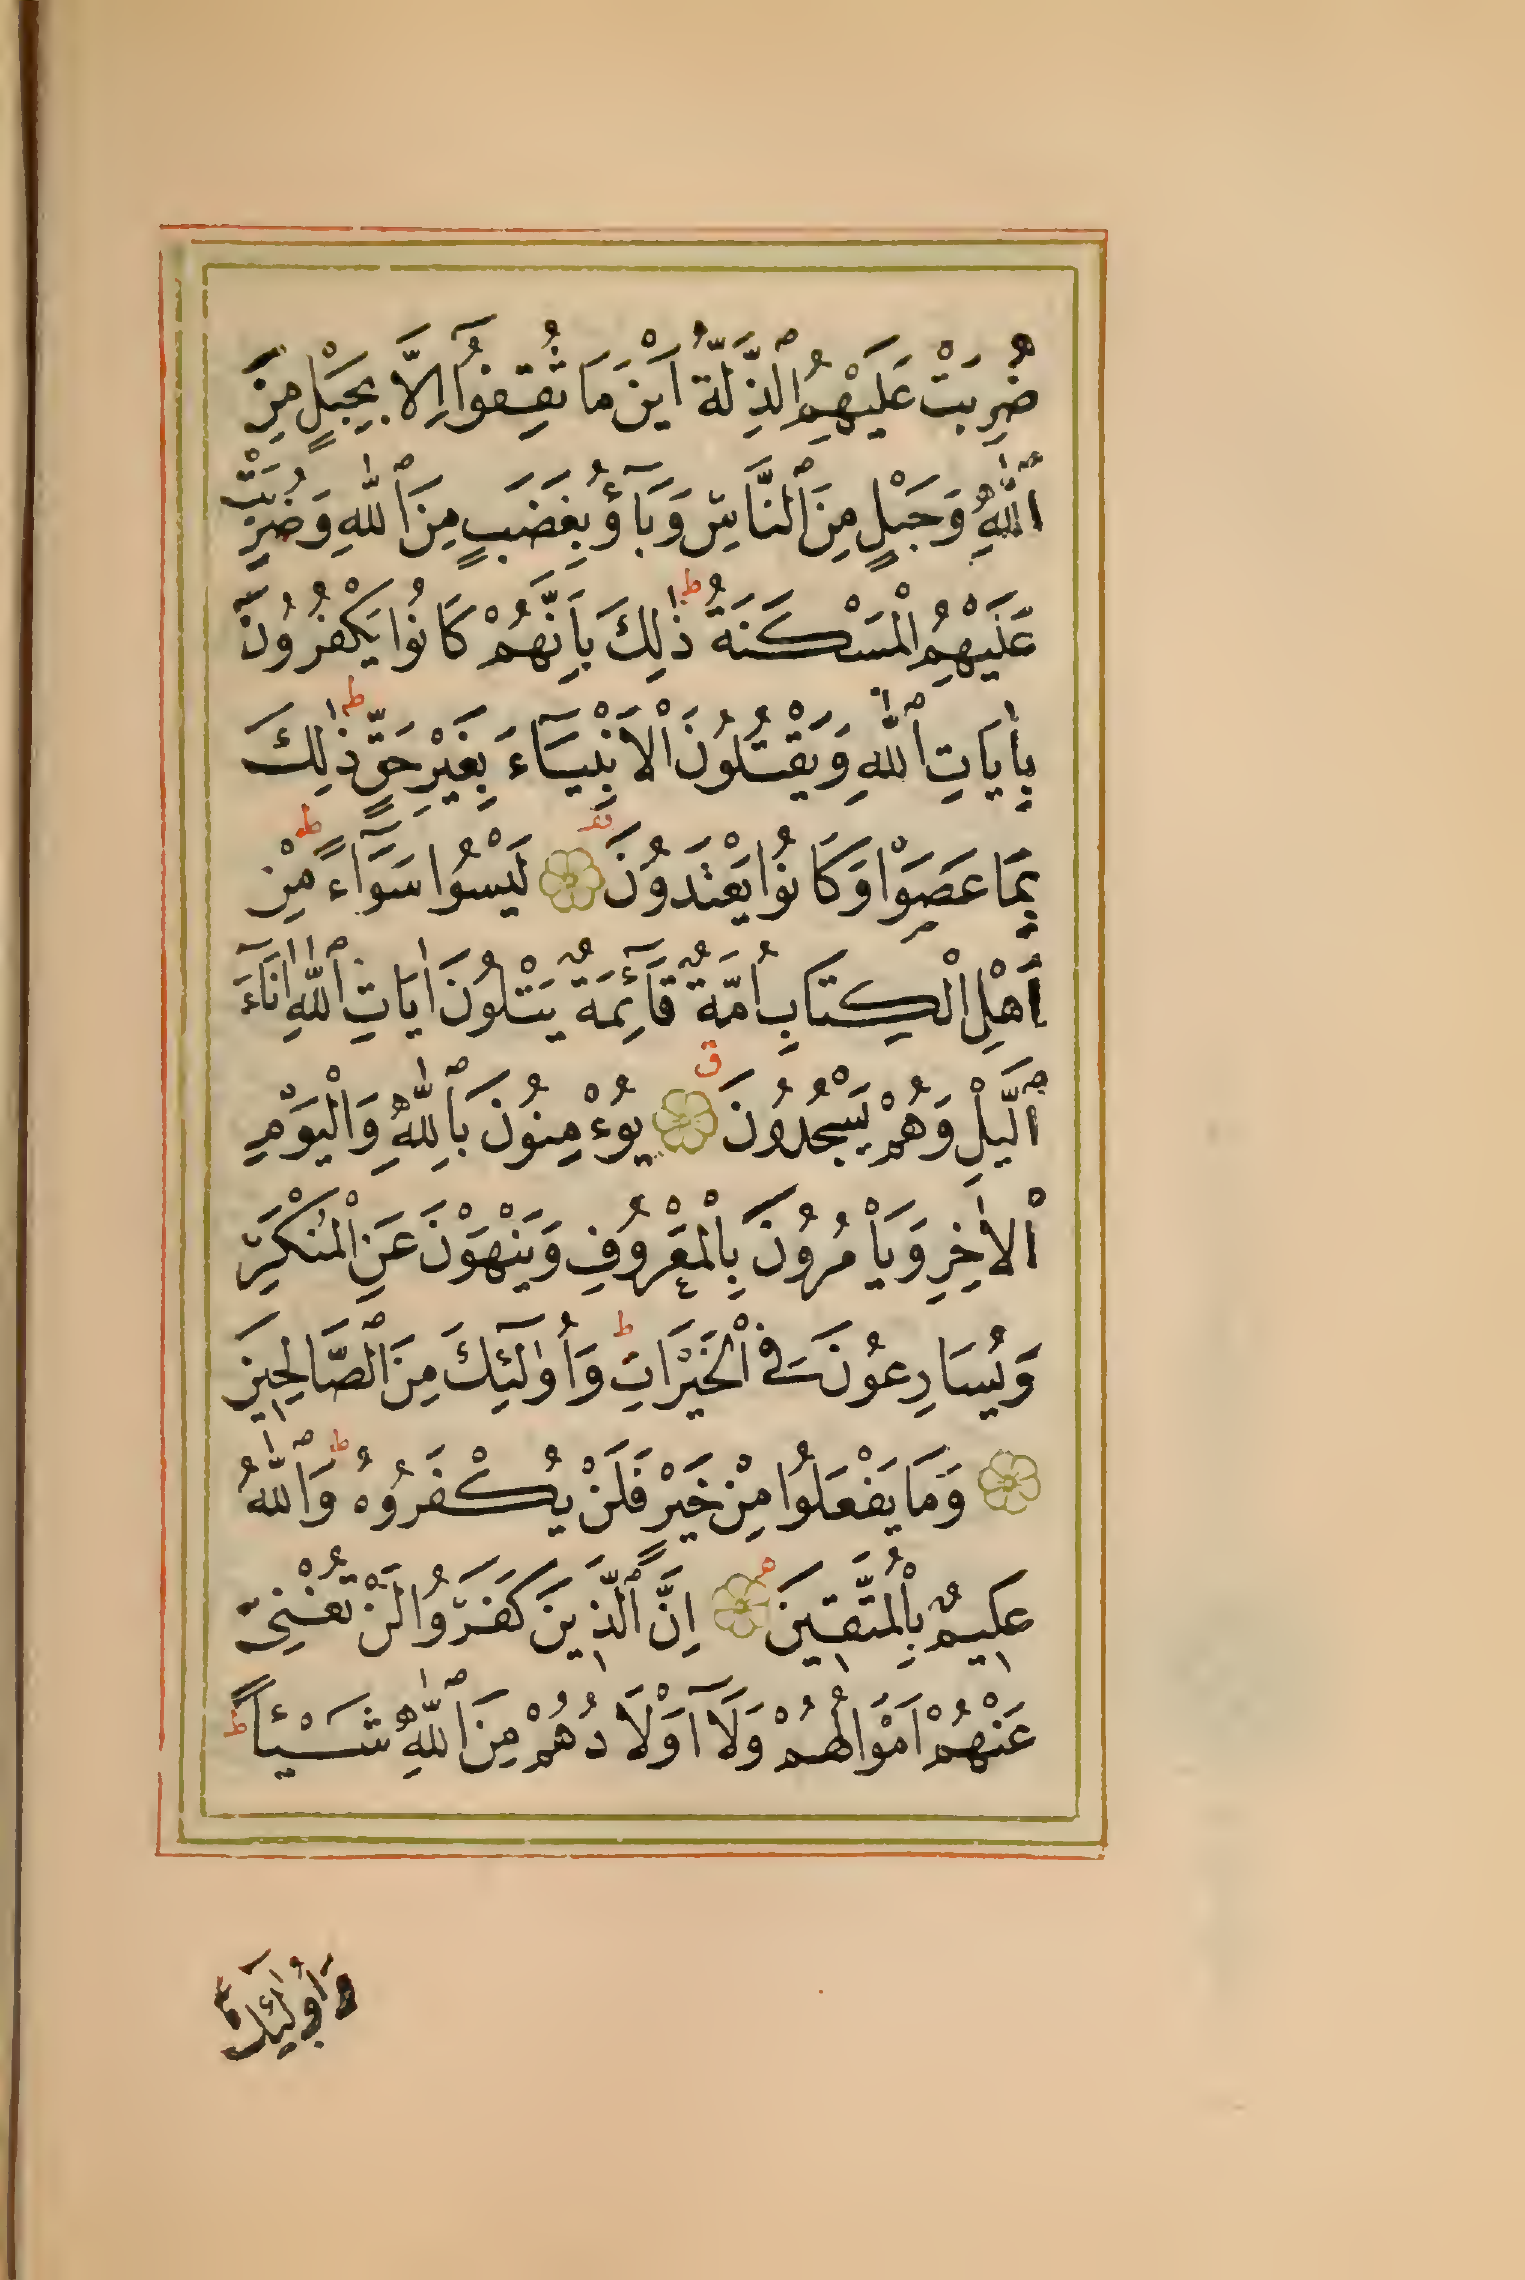 ضُرِبَتْ عَلَيْهِمُ ٱلذِّلَّةُ اَيْنَ مَا ثُقِفُوٓا اِلَّا بِحَبْلٍ مِنَ
ٱللّٰهِ وَحَبْلٍ مِنَ ٱلنَّاسِ وَبَآؤُ بِغَضَبٍ مِنَ ٱللّٰهِ وَضُرِبَتْ
عَلَيْهِمُ الْمَسْكَنَةُ ط ذٰلِكَ بِاَنَّهُمْ كَانُوا يَكْفُرُونَ
بِاٰيَاتِ ٱللّٰهِ وَيَقْتُلُونَ الْاَنْبِيَآءَ بِغَيْرِ حَقٍّ ط ذٰلِكَ
بِمَا عَصَوْا وَكَانُوا يَعْتَدُونَ لَيْسُوا سَوَآءً ط مِنْ
اَهْلِ الْكِتَابِ اُمَّةٌ قَآئِمَةٌ يَتْلُونَ اٰيَاتِ ٱللّٰهِ اٰنَآءَ
ٱلَّيْلِ وَهُمْ يَسْجُدُونَ ق يُوءْمِنُونَ بِٱللّٰهِ وَالْيَوْمِ
الْاٰخِرِ وَيَاْمُرُونَ بِالْمَعْرُوفِ وَيَنْهَوْنَ عَنِ الْمُنْكَرِ
وَيُسَارِعُونَ فِي الْخَيْرَاتِ ط وَاُولٰٓئِكَ مِنَ ٱلصَّالِحِينَ
وَمَا يَفْعَلُوا مِنْ خَيْرٍ فَلَنْ يُكْفَرُوهُ ط وَٱللّٰهُ
عَلِيمٌ بِالْمُتَّقِينَ اِنَّ ٱلَّذِينَ كَفَرُوا لَنْ تُغْنِىَ
عَنْهُمْ اَمْوَالُهُمْ وَلَآ اَوْلَادُهُمْ مِنَ ٱللّٰهِ شَيْئًا ط
وَاُولٰٓئِكَ